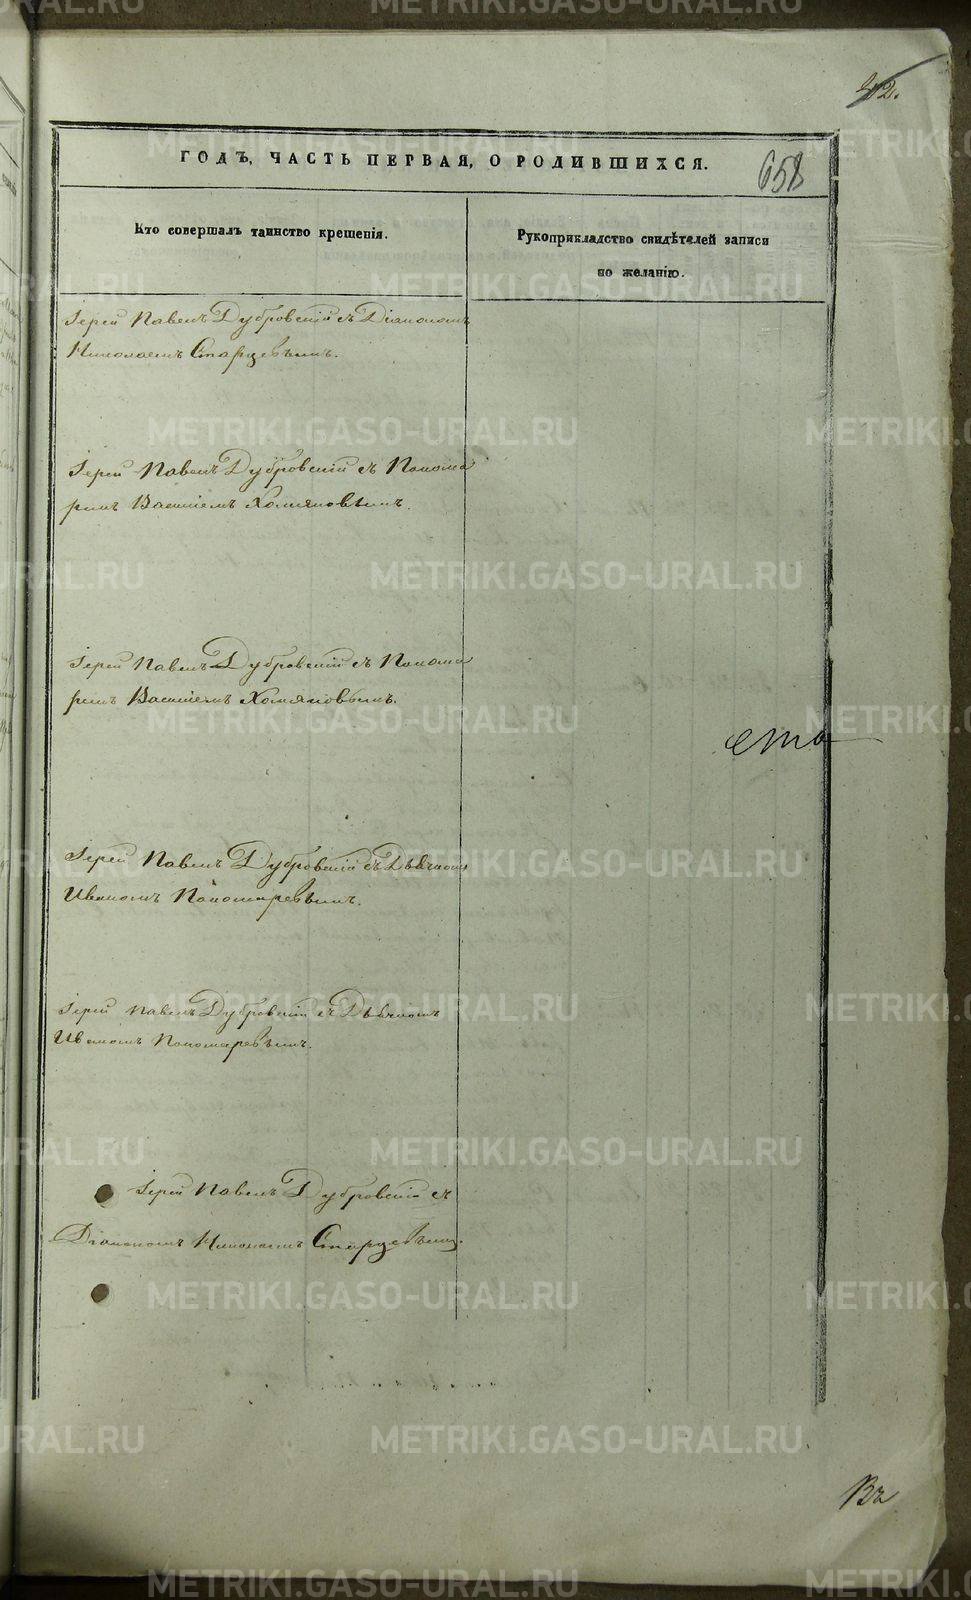 402.
ГОДЪ, ЧАСТЬ ПЕРВАЯ, О РОДИВШИХСЯ.
658
Кто совершалъ таинство крещенія.
Рукоприкладство свидѣтелей записи
по желанію.
Іерей Павелъ Дубровскій съ Діакономъ
Николаемъ Старцевымъ.
Іерей Павелъ Дубровскій съ Понома
ремъ Василіемъ Хомяковымъ.
Іерей Павелъ Дубровскій съ Понома
ремъ Василіемъ Хомяковымъ.
ста
Іерей Павелъ Дубровскій съ Дьячкомъ
Иваномъ Пономаревымъ.
Іерей Павелъ Дубровскій съ Дьячкомъ
Иваномъ Пономаревымъ.
Іерей Павелъ Дубровскій съ
Діакономъ Николаемъ Старцевымъ.
Въ
METRIKI.GASO-URAL.RU